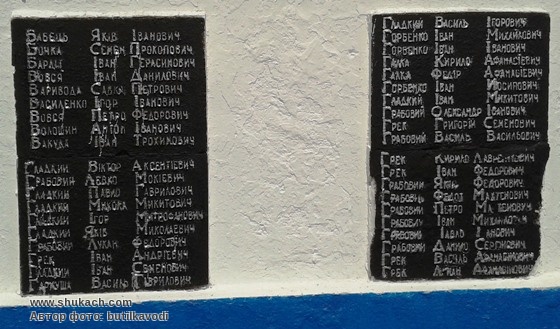 Бабець Яків Іванович
Бочка Семен Прокопович
Барды Іван Герасимович
Вовся Іван Данилович
Варивода Савка Петрович
Василенко Ігор Іванович
Вовся Петро Федорович
Волошин Антон Іванович
Вакуда Іван Трохимович
Гладкий Віктор Аксентієвич
Грабовий Левко Мокієвич
Гладкий Павло Гаврилович
Гладкий Микола Микитович
Гладкий Ігор Митрофанович
Гладкий Яків Миколаєвич
Грабовий Лукан Федорович
Грек Іван Андрієвич
Гладкий Іван Семенович
Гаркуша Василь Гаврилович
Гладкий Василь Ігорович
Горбенко Іван Михайлович
Горбенко Іван Іванович
Галка Кирило Афанасієвич
Галка Федір Афанасієвич
Горбенко Іван Йосипович
Гладкий Іван Микитович
Грабовий Олександр Іванович
Грек Григорій Семенович
Грабовий Василь Васильович
Грек Кирило Лаврентієвич
Грек Іван Федорович
Грабовий Яків Федорович
Грабовий Федот
Грабовий Петро
Грабовий Іван
Грабовий Павло Іванович
Грабовий Данило Сергійович
Грек Василь
Грек
www.shukach.com
Автор фото: butilkavodi